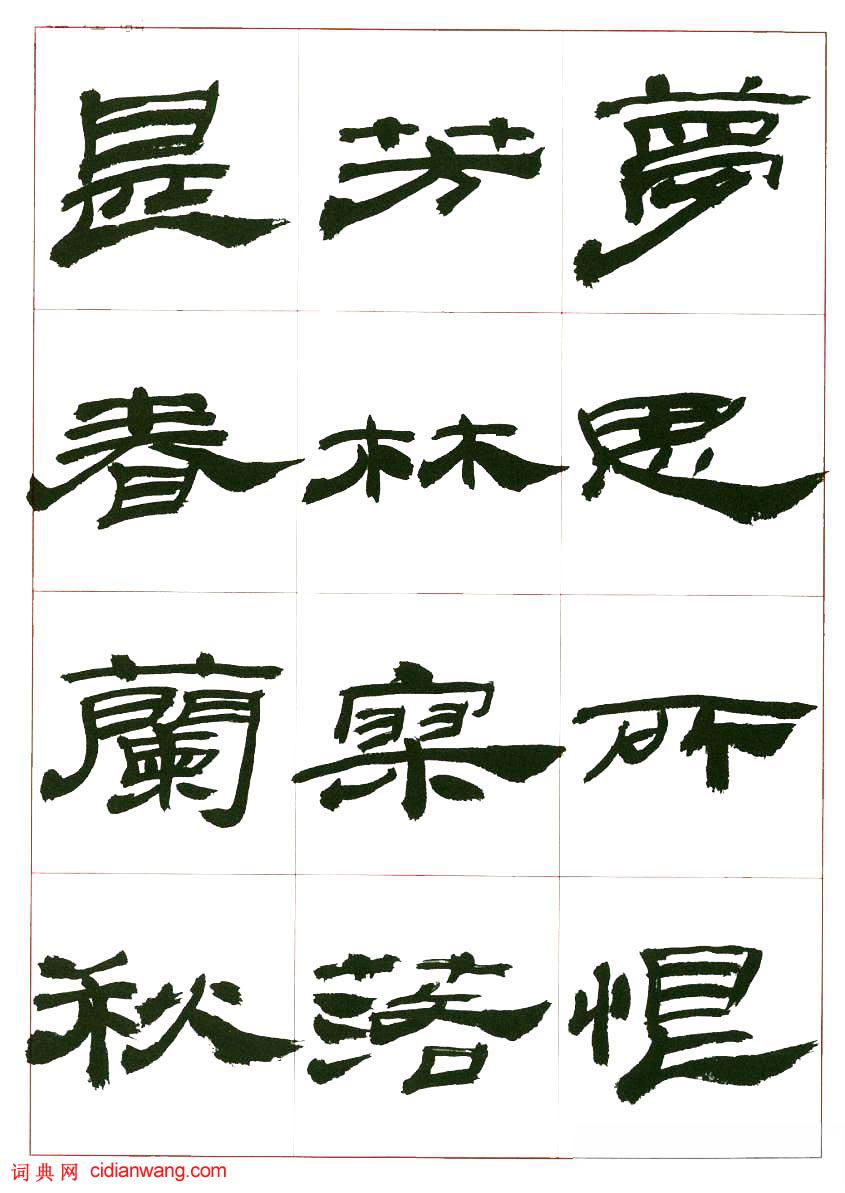 夢思所恨
芳林寥落
甚春蘭秋
词典网 cidianwang.com